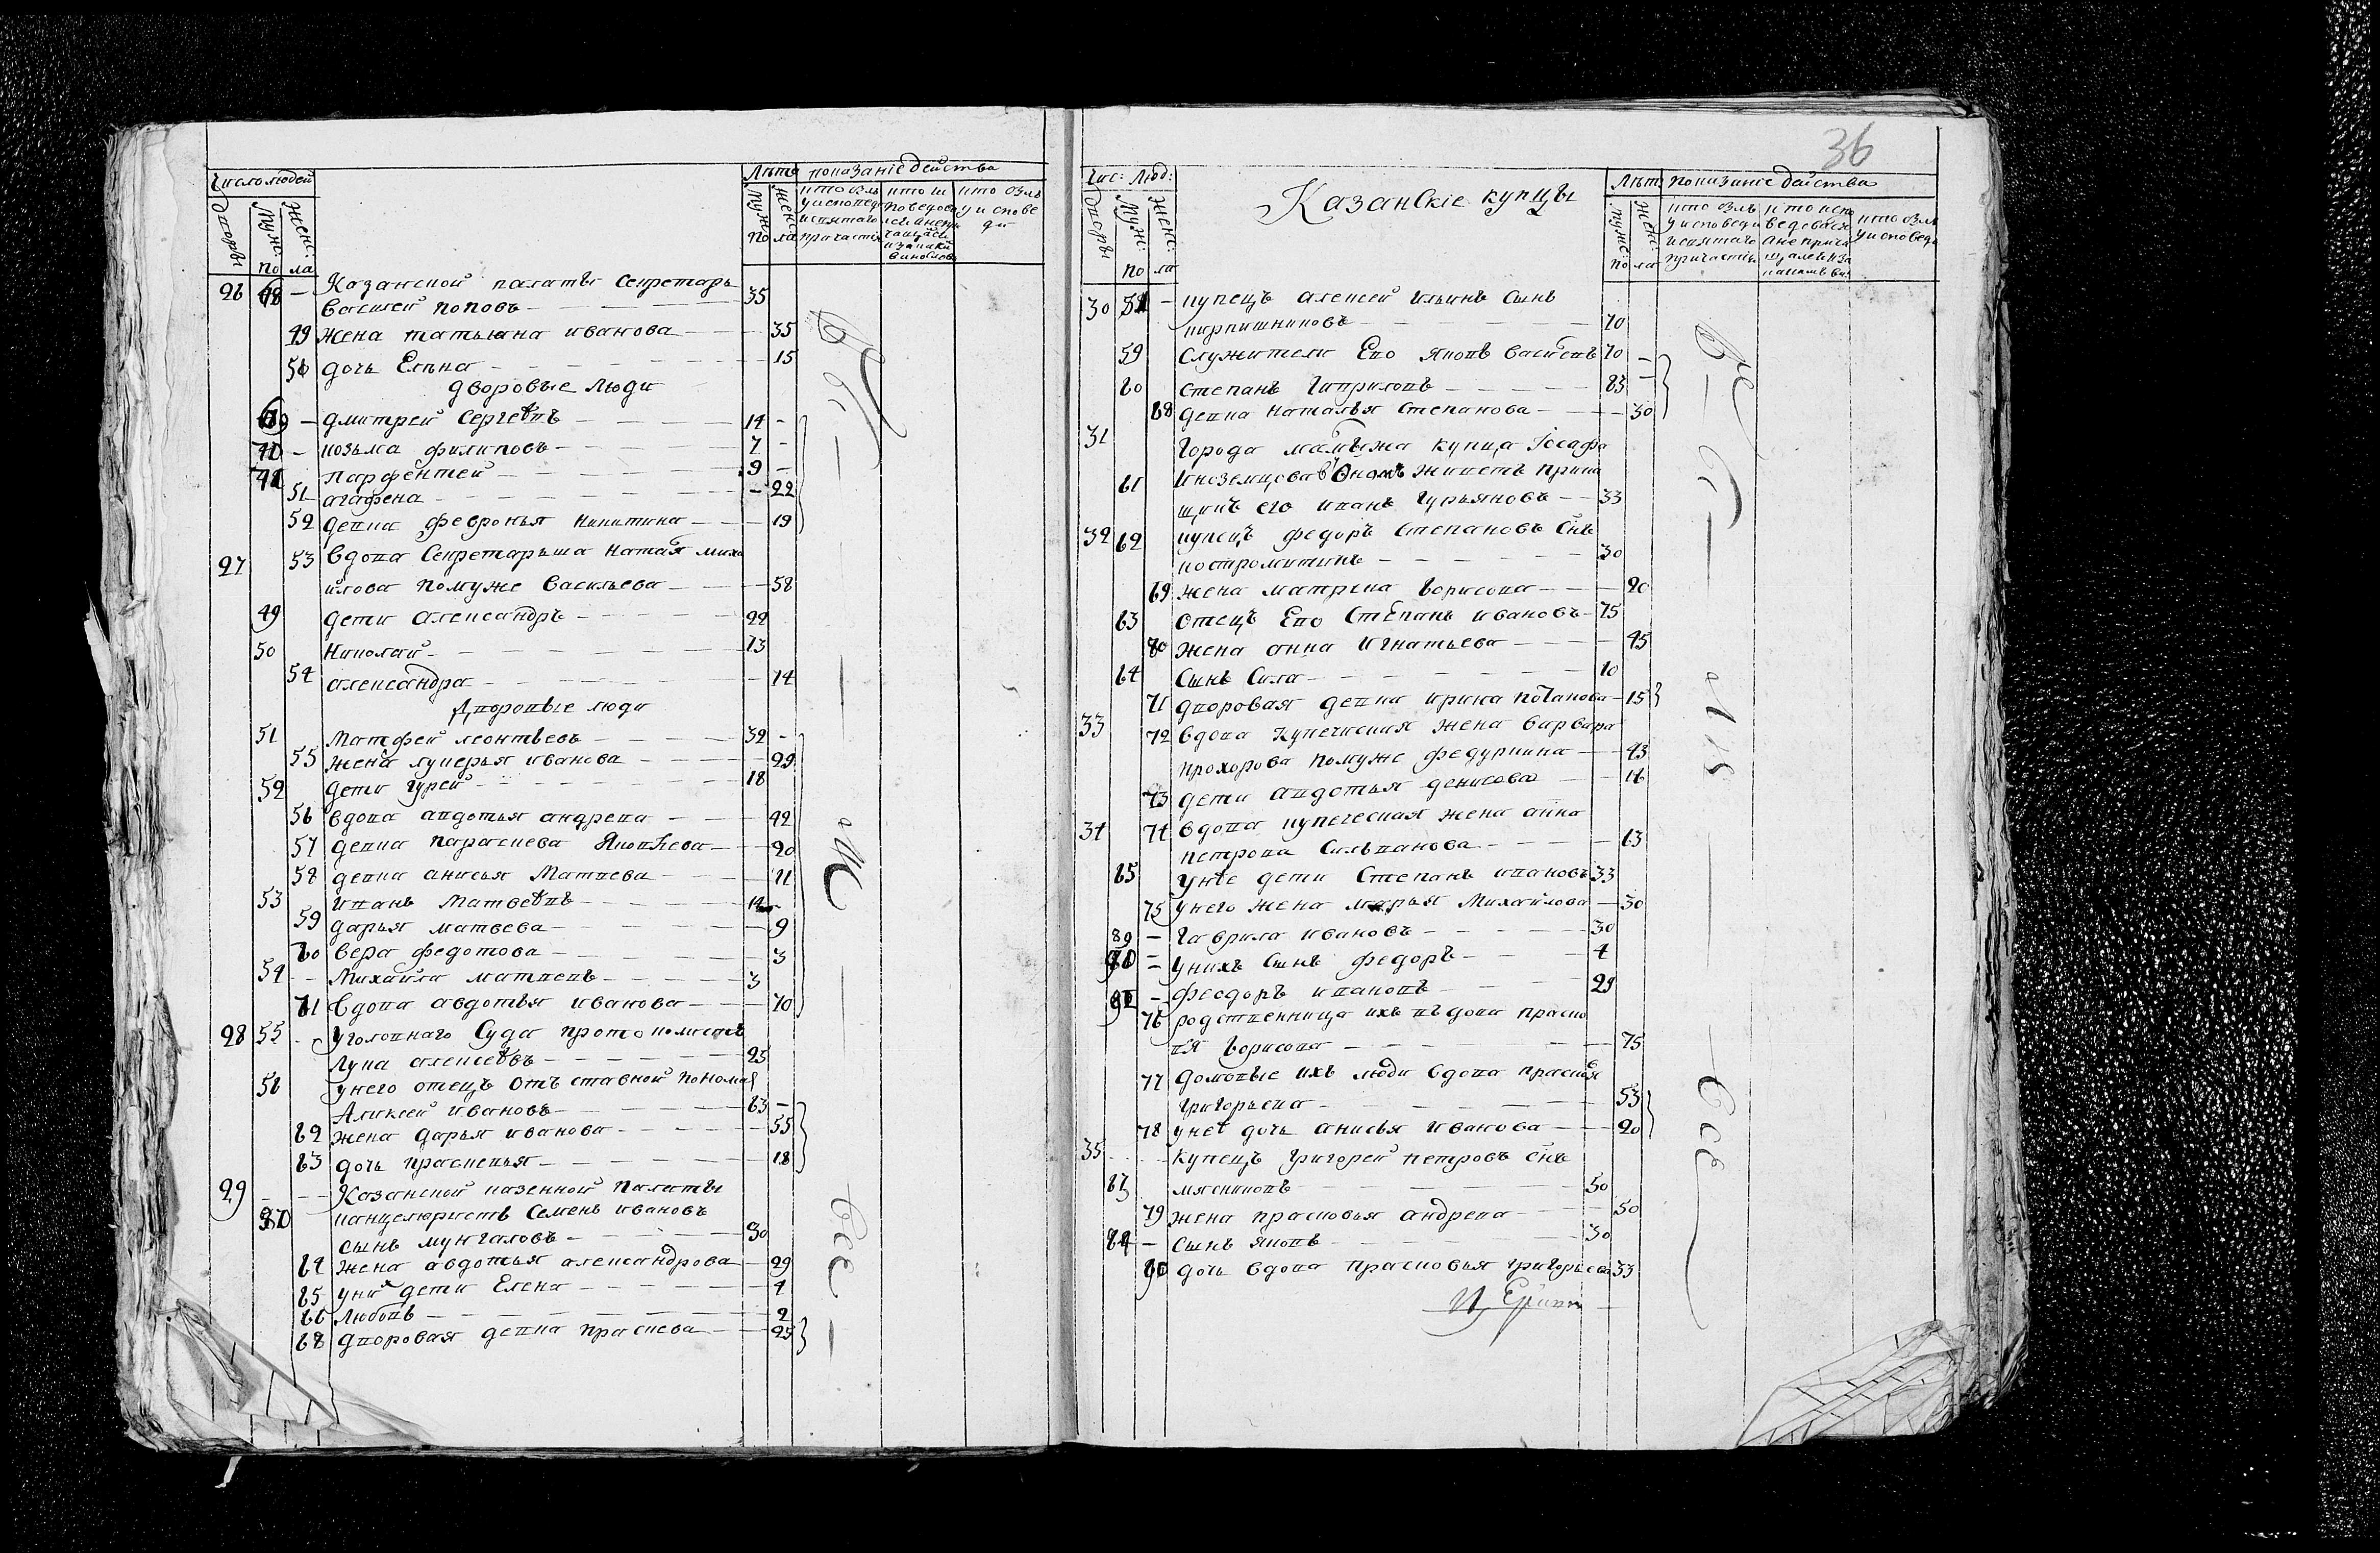 Число людей
Лѣта показаніе действа
дворы муж: жен:
пола
муж: жен:
пола
кто былъ у исповеди и святаго причастія
кто исповедовался а не причащался и за какимъ винословіемъ
кто не былъ у исповеди
26 48 — Казанской палаты Секретарь
Василей поповъ — 35
49 жена татьяна иванова — 35
50 дочь Елена — 15
дворовые люди
— дмитрей Сергеевъ — 14 -
— козьма филиповъ — 7 -
парфентей — 9 -
51 агафена — 22
52 девка февронья никитина — 19
27 53 вдова Секретарьша Наталья миха
илова помуже Васильева — 58
49 дети александръ — 22
50 Николай — 13
54 александра — 14
Дворовые люди
51 Матфей леонтьевъ — 32 -
55 жена лукерья иванова — 29
52 дети гурей — 18
56 вдова авдотья андрева — 42
57 девка параскева Яковлева — 20
58 девка анисья Матвева — 11
53 иванъ Матвеевъ — 14 -
59 дарья матвева — 9
60 вера федотова — 3
54 - Михайла матвевъ — 3
61 вдова авдотья иванова — 70
28 55 - уголовнаго Суда протоколистъ
Лука алексеевъ — 25
56 унего отецъ отъставной пономарь
Аликсей ивановъ — 63 -
62 жена дарья иванова — 55
63 дочь прасковья — 18
29 - - Казанской казенной палаты
57 канцеляристъ Семенъ ивановъ
сынъ мунгаловъ — 30
64 жена авдотья александрова — 29
65 уних дети Елена — 4
66 Любовь — 2
68 дворовая девка праскева — 25
36
Чис: Люд:
Казанскіе купцы
Лѣта показаніе действа
дворы муж: жен:
пола
муж: жен:
пола
кто былъ у исповеди и святаго причастія
кто исповедовался а не причащался и за какимъ вин
кто не былъ у исповеди
30 58 - купецъ алексей ильинъ сынъ
кирпишниковъ — 70
59 служители Его яковъ васильевъ 70 -
60 степанъ Гавриловъ — 23 -
68 девка наталья степанова — 30
31 города мамыжа купца Іосафа
61 иноземцова в ономъ живетъ прика
щикъ его иванъ гурьяновъ — 33
32 62 купецъ федоръ степановъ снъ
костромитинъ — 30
69 жена матрена борисова — 20
63 отецъ Его Степанъ ивановъ — 75
70 жена анна игнатьева — 45
64 сынъ Сила — 10
71 дворовая девка ирина потапова — 15
33 72 вдова купеческая жена варвара
прохорова помуже федуркина — 43
73 дети авдотья денисова — 16
34 74 вдова купеческая жена анна
петрова Сильванова — 63
65 унее дети Степанъ ивановъ 33
75 унего жена марья Михайлова — 30
— гаврила ивановъ — 30
— унихъ сынъ федоръ — 4
— феодоръ ивановъ — 29
76 родственница ихъ вдова праско
вья борисова — 75
77 домовые ихъ люди вдова прасковья
григорьева — 53
78 унее дочь анисья иванова — 20
35 купецъ григорей петровъ снъ
67 мясниковъ — 50
79 жена прасковья андрева — 50
— сынъ яковъ — 30
80 дочь вдова прасковья григорьева 33